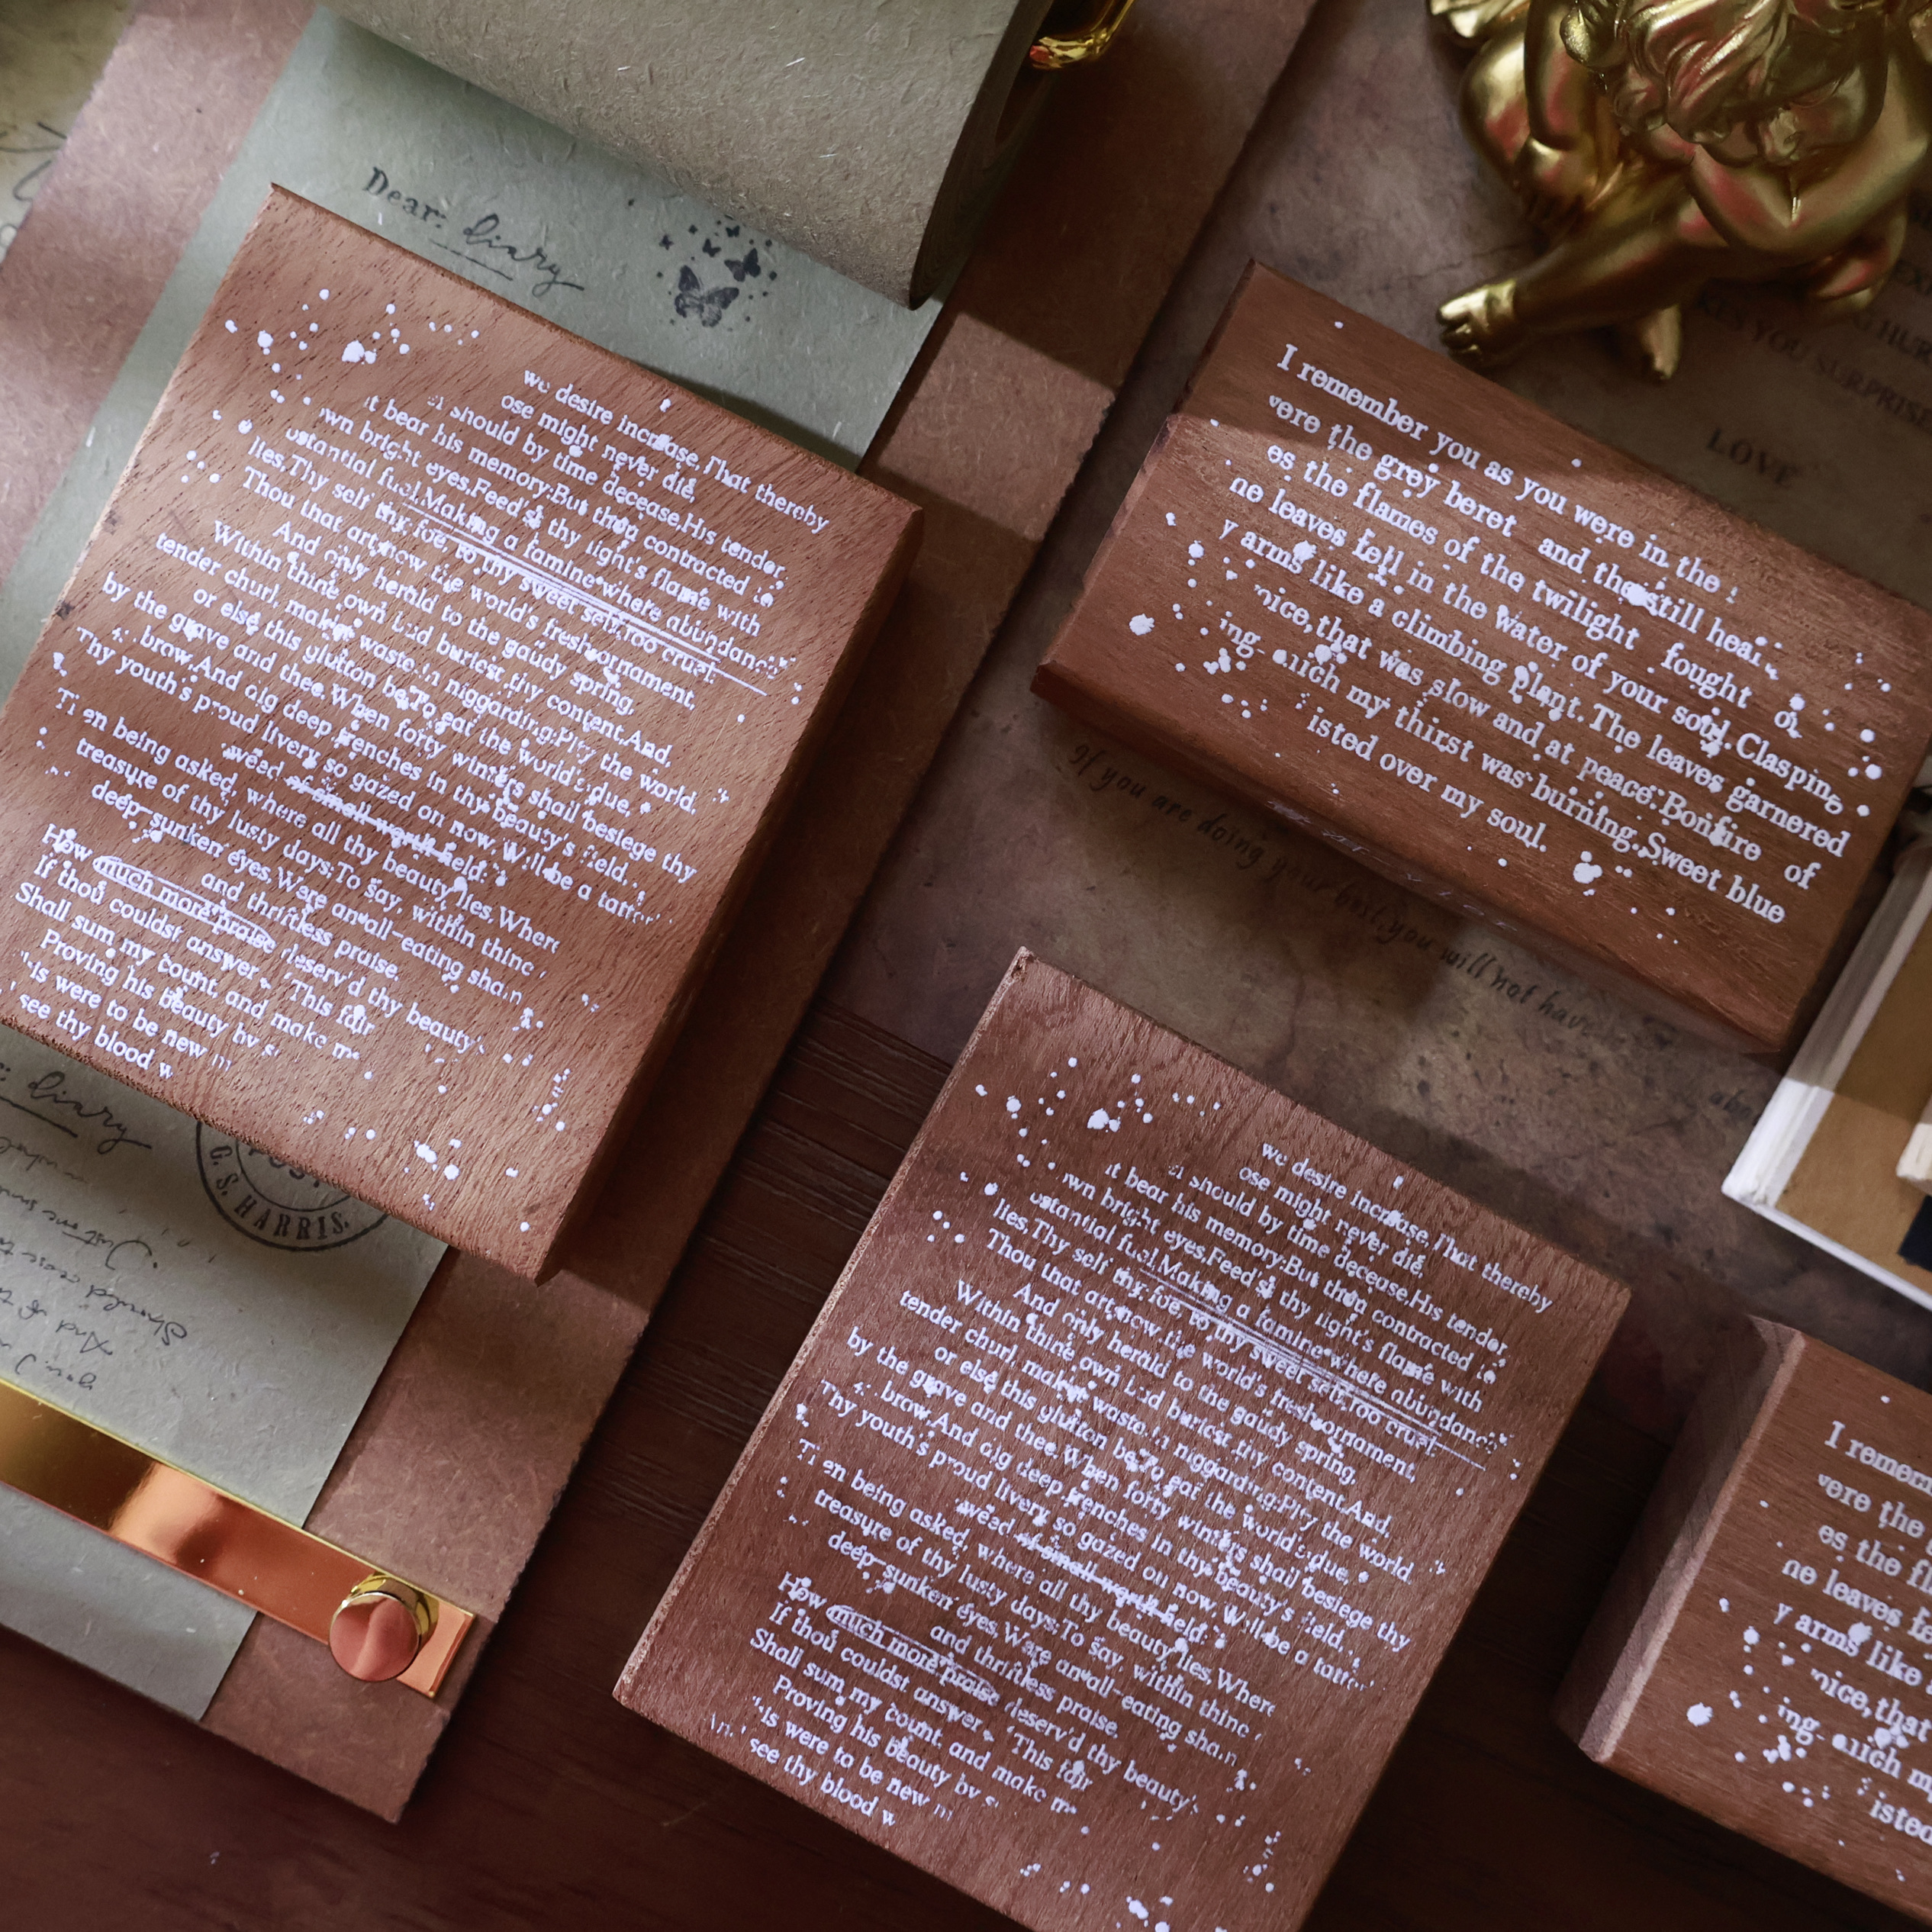 Dear: diary
we desire increase, That thereby
ose might never die,
should by time decease, His tender
it bear his memory: But thou contracted
wn bright eyes, Feed'st thy light's flame with
ustantial fuel, Making a famine where abundance
lies, Thy self thy foe, to thy sweet self too cruel:
Thou that art now the world's fresh ornament,
And only herald to the gaudy spring,
Within thine own bud buriest thy content, And,
tender churl, mak'st waste in niggarding: Pity the world,
or else this glutton be, To eat the world's due,
by the grave and thee. When forty winters shall besiege thy
brow, And dig deep trenches in thy beauty's field,
Thy youth's proud livery so gazed on now, Will be a tatter
weed of small worth held:
Then being asked, where all thy beauty lies, Where
treasure of thy lusty days; To say, within thine
deep sunken eyes, Were an all-eating sham
and thriftless praise.
How much more praise deserv'd thy beauty's
If thou couldst answer 'This fair
Shall sum my count, and make m
Proving his beauty by s
is were to be new m
see thy blood w
diary
G. S. HARRIS.
I remember you as you were in the
vere the grey beret and the still hear
es the flames of the twilight fought o
no leaves fell in the water of your soul. Clasping
y arms like a climbing plant. The leaves garnered
oice, that was slow and at peace: Bonfire of
ing which my thirst was burning. Sweet blue
isted over my soul.
KES YOU SURPRISE
LOVE
If you are doing your best, you will not have
we desire increase, That thereby
ose might never die,
should by time decease, His tender
it bear his memory: But thou contracted
wn bright eyes, Feed'st thy light's flame with
ustantial fuel, Making a famine where abundance
lies, Thy self thy foe, to thy sweet self too cruel:
Thou that art now the world's fresh ornament,
And only herald to the gaudy spring,
Within thine own bud buriest thy content, And,
tender churl, mak'st waste in niggarding: Pity the world,
or else this glutton be, To eat the world's due,
by the grave and thee. When forty winters shall besiege thy
brow, And dig deep trenches in thy beauty's field,
Thy youth's proud livery so gazed on now, Will be a tatter
weed of small worth held:
Then being asked, where all thy beauty lies, Where
treasure of thy lusty days; To say, within thine
deep sunken eyes, Were an all-eating sham
and thriftless praise.
How much more praise deserv'd thy beauty's
If thou couldst answer 'This fair
Shall sum my count, and make m
Proving his beauty by s
is were to be new m
see thy blood w
I remem
vere the
es the fl
no leaves f
y arms like
oice, that
ing which m
isted